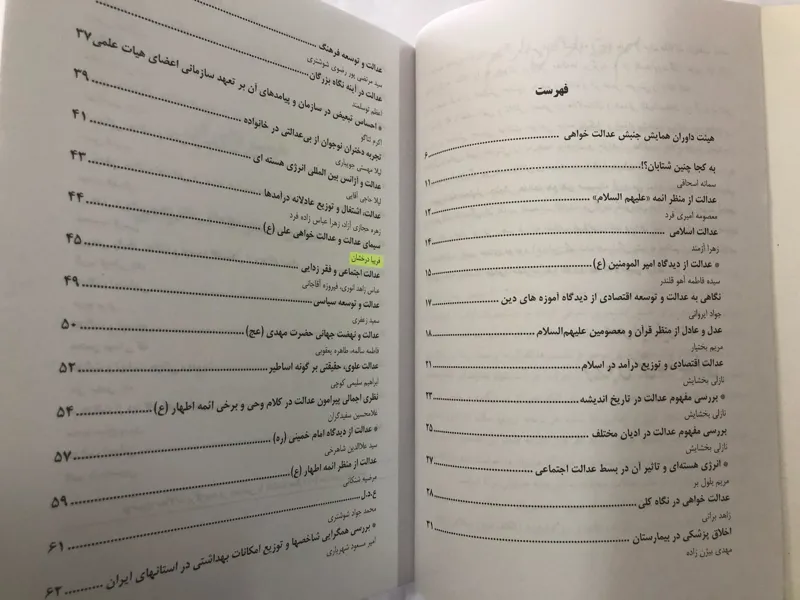 فهرست
هیئت داوران همایش جنبش عدالت خواهی ........ ۶
به کجا چنین شتابان؟! ........ ۱۱
سمانه اسحاقی
عدالت از منظر ائمه «علیهم السلام» ........ ۱۲
معصومه امیری فرد
عدالت اسلامی ........ ۱۴
زهرا آزمند
* عدالت از دیدگاه امیر المومنین (ع) ........ ۱۵
سیده فاطمه آهو قلندر
نگاهی به عدالت و توسعه اقتصادی از دیدگاه آموزه های دین ........ ۱۷
جواد ایروانی
عدل و عادل از منظر قرآن و معصومین علیهم‌السلام ........ ۱۸
مریم بختیار
عدالت اقتصادی و توزیع درآمد در اسلام ........ ۲۱
نازلی بخشایش
* بررسی مفهوم عدالت در تاریخ اندیشه ........ ۲۳
نازلی بخشایش
بررسی مفهوم عدالت در ادیان مختلف ........ ۲۵
نازلی بخشایش
* انرژی هسته‌ای و تاثیر آن در بسط عدالت اجتماعی ........ ۲۷
مریم بلول بر
عدالت خواهی در نگاه کلی ........ ۲۸
زاهد براتی
اخلاق پزشکی در بیمارستان ........ ۳۱
مهدی بیژن زاده
عدالت و توسعه فرهنگ ........
سید مرتضی پور رضوی شوشتری
عدالت در آینه نگاه بزرگان ........ ۳۷
اعظم توسلیند
* احساس تبعیض در سازمان و پیامدهای آن بر تعهد سازمانی اعضای هیات علمی ۳۹
اکرم تناگو
تجربه دختران نوجوان از بی‌عدالتی در خانواده ........ ۴۱
لیلا مهستی جویباری
عدالت و آژانس بین المللی انرژی هسته ای ........ ۴۳
لیلا حاجی آقایی
عدالت، اشتغال و توزیع عادلانه درآمدها ........ ۴۴
زهره حجازی آزاد، زهرا عباس زاده فرد
سیمای عدالت و عدالت خواهی علی (ع) ........ ۴۵
فریبا درخشان
عدالت اجتماعی و فقر زدایی ........ ۴۹
عباس زاهد انوری، فیروزه آقاجانی
عدالت و توسعه سیاسی ........ ۵۰
سعید زعفری
عدالت و نهضت جهانی حضرت مهدی (عج) ........ ۵۲
فاطمه سالمه، طاهره یعقوبی
عدالت علوی، حقیقتی بر گونه اساطیر ........
ابراهیم سلیمی کوچی
نظری اجمالی پیرامون عدالت در کلام وحی و برخی ائمه اطهار (ع) ........ ۵۴
غلامحسین سفیدگران
* عدالت از دیدگاه امام خمینی (ره) ........ ۵۷
سید علاالدین شاهرخی
عدالت از منظر ائمه اطهار (ع) ........ ۵۹
مرضیه شنکائی
ع.د.ل ........ ۶۱
محمد جواد شوشتری
* بررسی همگرایی شاخصها و توزیع امکانات بهداشتی در استانهای ایران ........ ۶۲
امیر مسعود شهریاری